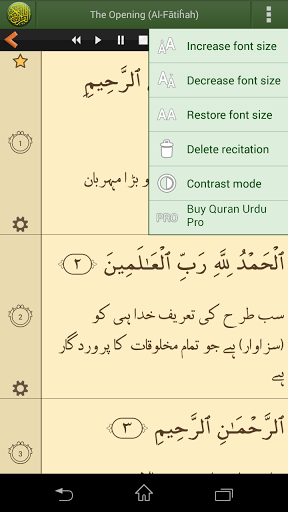 The Opening (Al-Fātiĥah)
Increase font size
Decrease font size
Restore font size
Delete recitation
Contrast mode
PRO Buy Quran Urdu
Pro
ٱلرَّحِيمِ
1
و بڑا مہربان
ٱلْحَمْدُ لِلَّهِ رَبِّ ٱلْعَـٰلَمِينَ ﴿٢﴾
2
سب طرح کی تعریف خدا ہی کو
(سزاوار) ہے جو تمام مخلوقات کا پروردگار
ہے
ٱلرَّحْمَـٰنِ ٱلرَّحِيمِ ﴿٣﴾
3